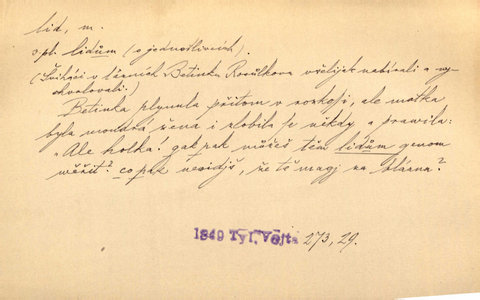 lid, m.
v pl. lidům (o jednotlivcích).
(Šviháci v lázních Betinku Rosůlkovu všelijak nabírali a vy-
chvalovali.)
Betinka plynula přitom v rozkoši, ale matka
byla moudrá žena i zlobila se někdy a pravila:
„Ale holka! gak pak můžeš těm lidům genom
wěřit? copak nevidjš, že tě magj za blázna?
1849 Tyl, Vojta 273, 29.